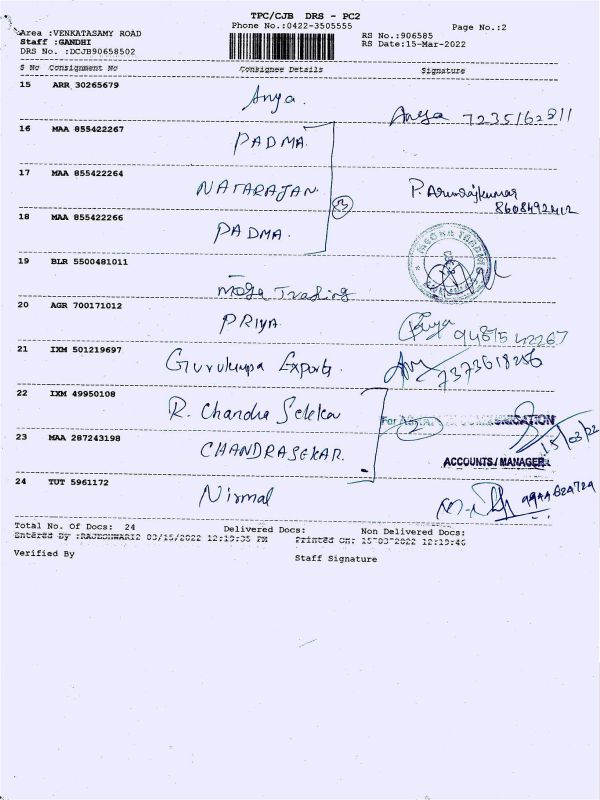 TPC/CJB DRS - PC2
Area :VENKATASAMY ROAD Phone No.:0422-3505555 Page No.:2
Staff :GANDHI RS No.:906585
DRS No. :DCJB90658502 RS Date:15-Mar-2022
S No Consignment No Consignee Details Signature
15 ARR 30265679 Anya. Anya 7235162811
16 MAA 855422267 PADMA.
17 MAA 855422264 NATARAJAN. P. Arunrajkumar
3 8608492412
18 MAA 855422266 PADMA.
19 BLR 5500481011 Mega Trading
20 AGR 700171012 PRIYA. Priya 9487542267
21 IXM 501219697 Gurukrupa Exports. 7373618256
22 IXM 49950108 R. Chandra Sekar For
2 15/03/22
23 MAA 287243198 CHANDRASEKAR. ACCOUNTS/MANAGER
24 TUT 5961172 Nirmal 9944624724
Total No. Of Docs: 24 Delivered Docs: Non Delivered Docs:
Entered By :RAJESHWARI2 03/15/2022 12:19:35 PM Printed On: 15-03-2022 12:19:46
Verified By Staff Signature